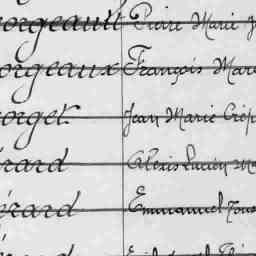 orgeault Pierre Marie J
orgeaux François Mari
orget Jean Marie Crép
érard Alexis Lucien Ma
érard Emmanuel Tous